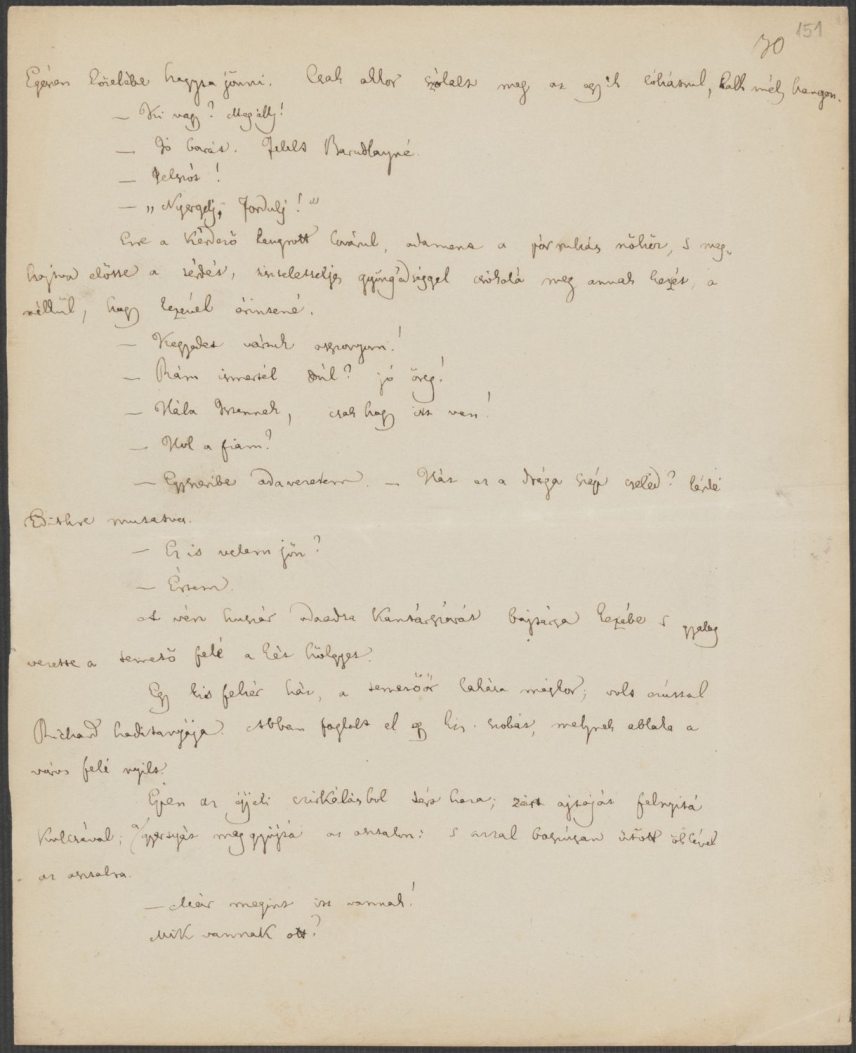 151
70
Egészen közelébe hagyta jönni. Csak akkor szólalt meg az egyik élőhalt, halk mély hangon.
— Ki vagy? Megállj!
— Jó barát. Felelt Baradlayné.
— Jelszót!
— „Nyergelj, fordulj!"
Erre a kérdező leugrott lováról, odament a pórruhás nőhöz, s meg-
hajtva előtte a térdét, tiszteletteljes gyöngédséggel csókolá meg annak kezét, a
nélkül, hogy kezével érintené.
— Kegyedet várjuk asszonyom!
— Rám ismertél Pál? jó öreg!
— Hála Istennek, csak hogy itt van!
— Hol a fiam?
— Egyszeribe odavezetem. — Hát az a drága szép cseléd? kérdé
Edithre mutatva.
— Ez is velem jön?
— Értem.
A vén huszár odaadta kantárszárát bajtársa kezébe s gyalog
vezette a temető felé a két hölgyet.
Egy kis fehér ház, a temetőőr lakása máskor; volt ezúttal
Richard haditanyája. Abban foglalt el egy kis szobát, melynek ablaka a
város felé nyílt.
Épen az éjjeli czirkálásbul tért haza; zárt ajtaját felnyitá
kulcsával; gyertyát meggyújtá az asztalon: s azzal bosszúsan ütött öklével
az asztalra.
— Már megint itt vannak!
Mik vannak ott?